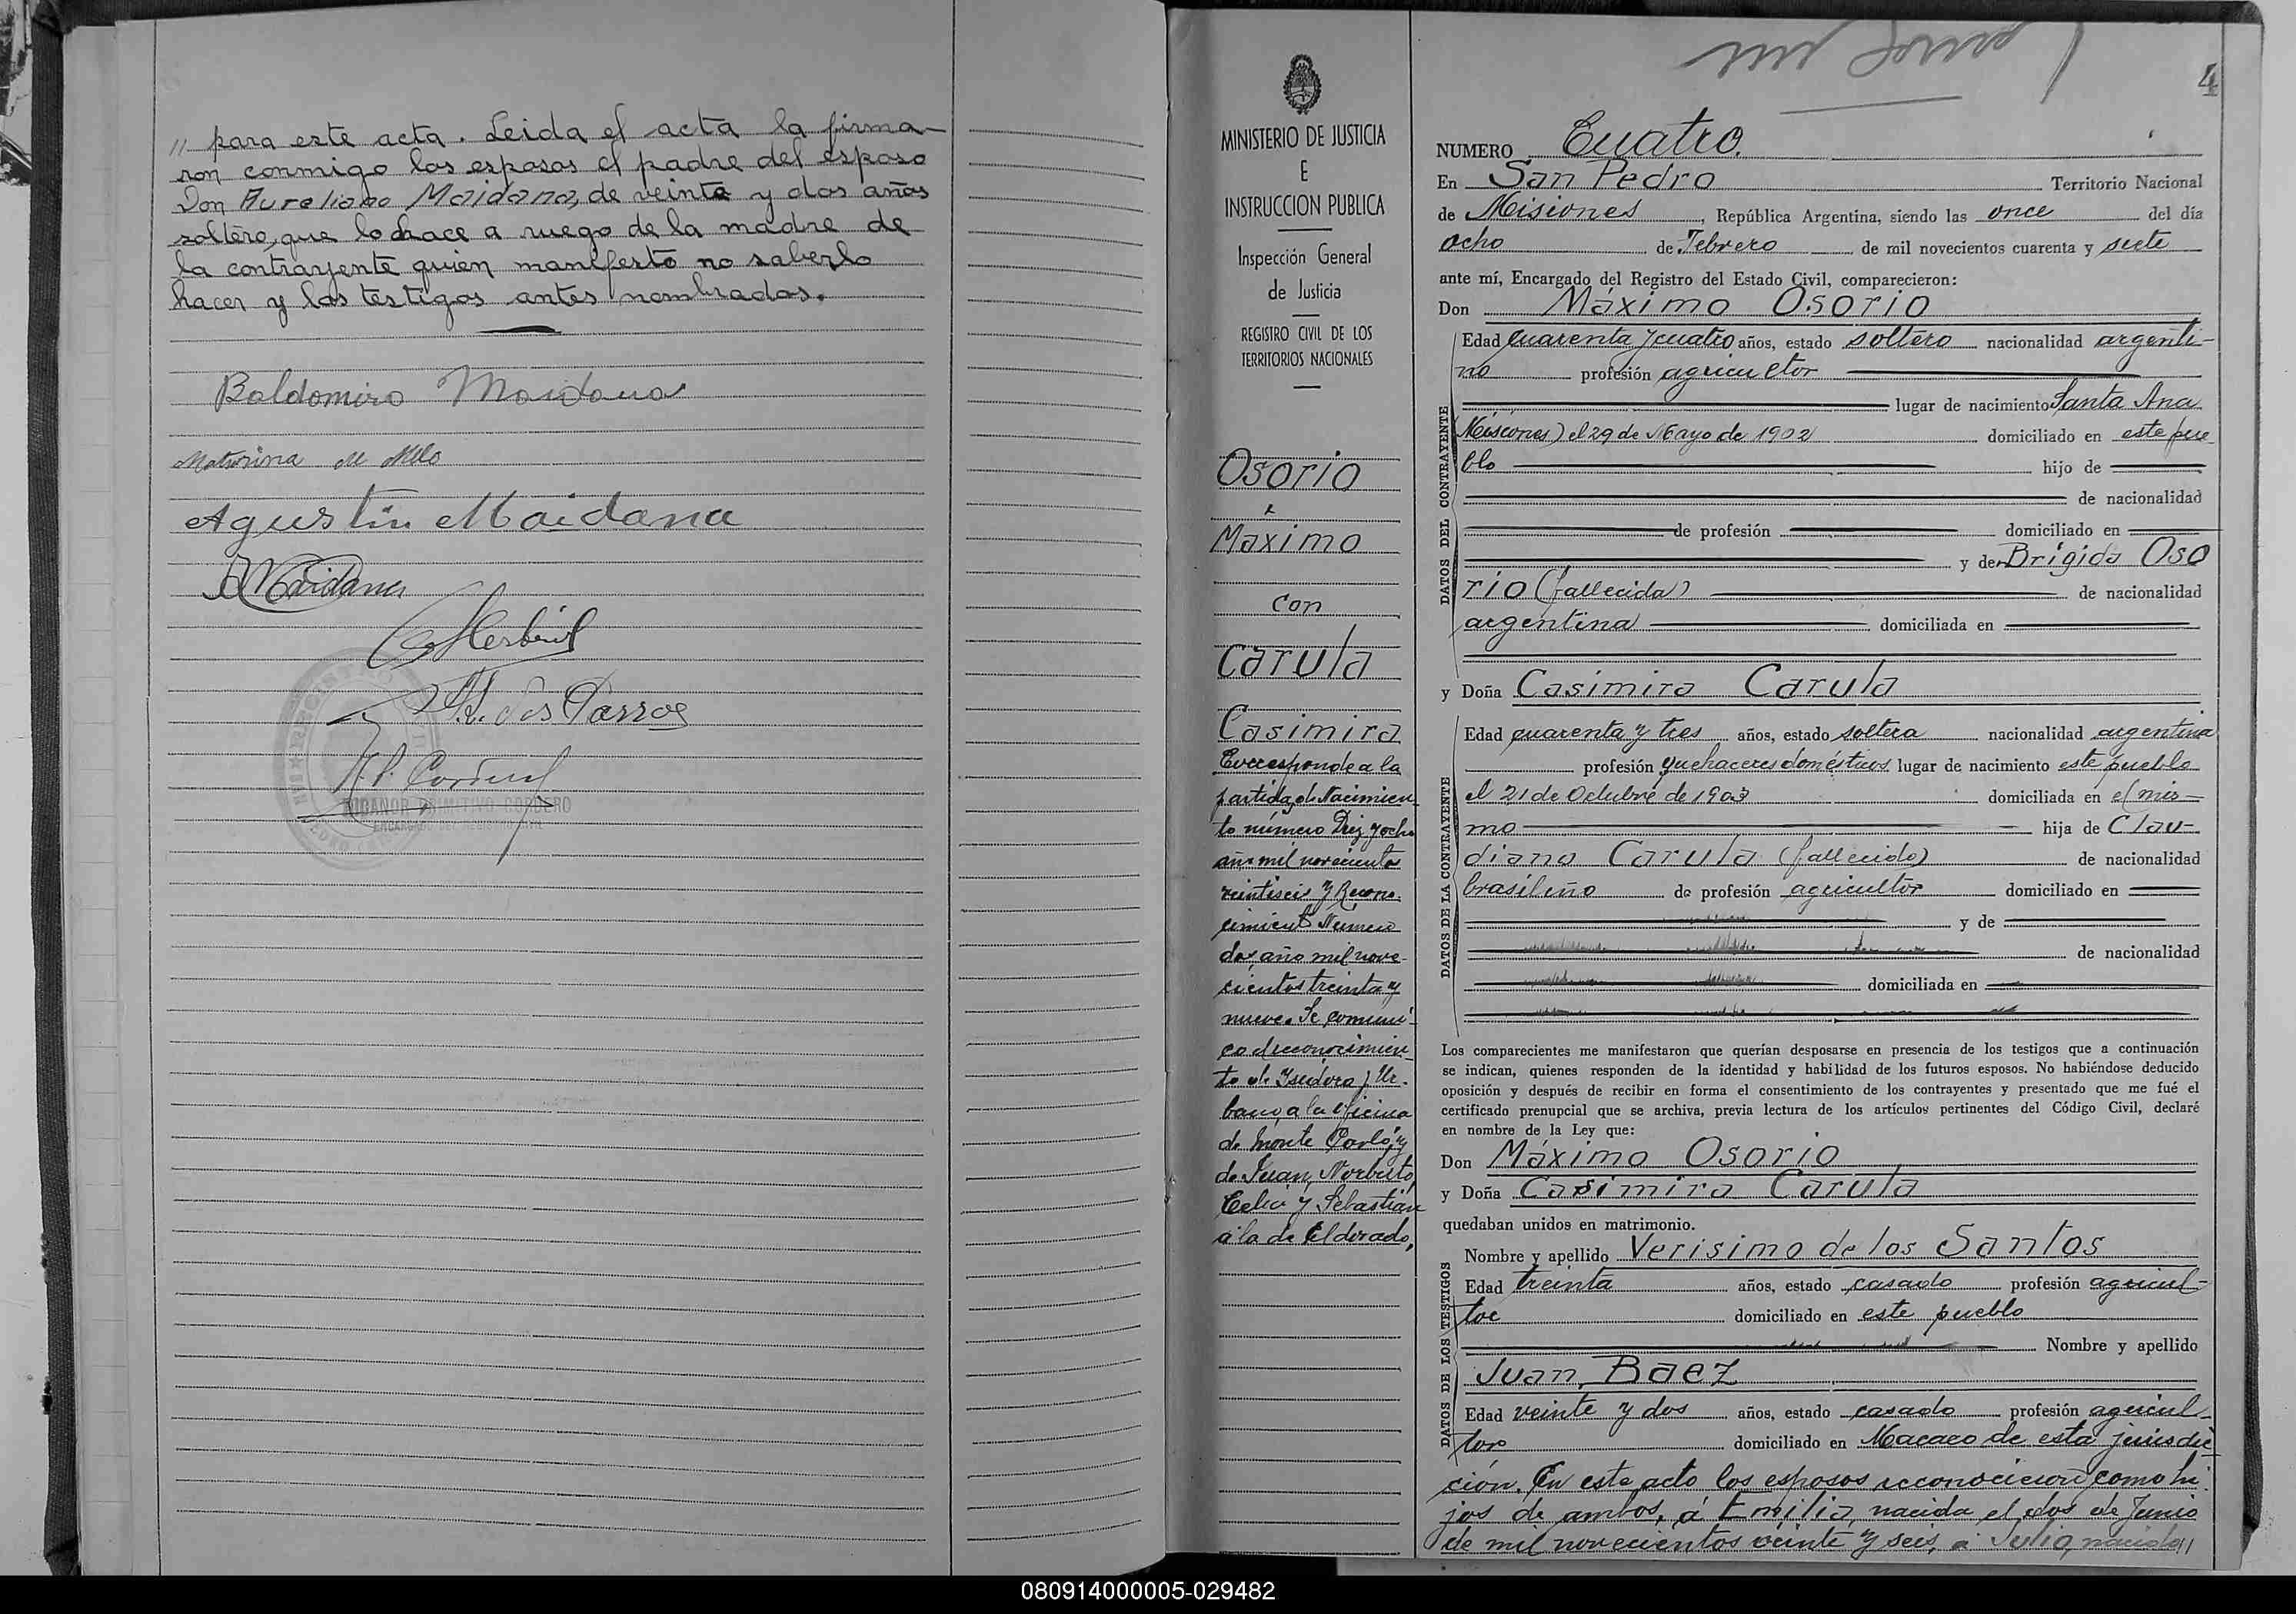 // para este acta. Leida el acta la firma-
ron conmigo los esposos el padre del esposo
Don Aureliano Maidana, de veinte y dos años
soltero, que lo hace a ruego de la madre de
la contrayente quien manifesto no saberlo
hacer y los testigos antes nombrados.
Baldomiro Maidana
Maturina M Melo
Agustin Maidana
A Maidana
dos Passos
N. P. Cordero
NICANOR PRIMITIVO CORDERO
ENCARGADO DEL REGISTRO CIVIL
MINISTERIO DE JUSTICIA
E
INSTRUCCION PUBLICA
Inspección General
de Justicia
REGISTRO CIVIL DE LOS
TERRITORIOS NACIONALES
Osorio
Maximo
con
Carula
Casimira
Corresponde a la
partida de Nacimien-
to número Diez y ocho
año mil novecientos
veintiseis y Recono-
cimiento Numero
dos año mil nove-
cientos treinta y
nueve. Se comuni-
co el reconocimien-
to de Isidora y Ur-
bano a la oficina
de Monte Carlo, y
de Juan, Norberto,
Celia y Sebastián
a la de Eldorado,
4
NUMERO Cuatro.
En San Pedro Territorio Nacional
de Misiones, República Argentina, siendo las once del día
ocho de Febrero de mil novecientos cuarenta y siete
ante mí, Encargado del Registro del Estado Civil, comparecieron:
Don Máximo Osorio
DATOS DEL CONTRAYENTE
Edad cuarenta y cuatro años, estado soltero nacionalidad argenti-
no profesión agricultor
lugar de nacimiento Santa Ana
(Misiones) el 29 de Mayo de 1902 domiciliado en este pue
blo hijo de
de nacionalidad
de profesión domiciliado en
y de Brigida Oso
rio (fallecida) de nacionalidad
argentina domiciliada en
y Doña Casimira Carula
DATOS DE LA CONTRAYENTE
Edad cuarenta y tres años, estado soltera nacionalidad argentina
profesión quehaceres domésticos lugar de nacimiento este pueblo
el 21 de Octubre de 1903 domiciliada en el mis-
mo hija de Clau-
diano Carula (fallecido) de nacionalidad
brasileño de profesión agricultor domiciliado en
y de
de nacionalidad
domiciliada en
Los comparecientes me manifestaron que querían desposarse en presencia de los testigos que a continuación
se indican, quienes responden de la identidad y habilidad de los futuros esposos. No habiéndose deducido
oposición y después de recibir en forma el consentimiento de los contrayentes y presentado que me fué el
certificado prenupcial que se archiva, previa lectura de los artículos pertinentes del Código Civil, declaré
en nombre de la Ley que:
Don Máximo Osorio
y Doña Casimira Carula
quedaban unidos en matrimonio.
DATOS DE LOS TESTIGOS
Nombre y apellido Verisimo de los Santos
Edad treinta años, estado casado profesión agricul-
tor domiciliado en este pueblo
Nombre y apellido
Juan Baez
Edad veinte y dos años, estado casado profesión agricul-
tor domiciliado en Macaco de esta jurisdic-
ción. En este acto los esposos reconocieron como hi-
jos de ambos, á Emilia, nacida el dos de Junio
de mil novecientos veinte y seis, a Julia, nacida //
080914000005-029482